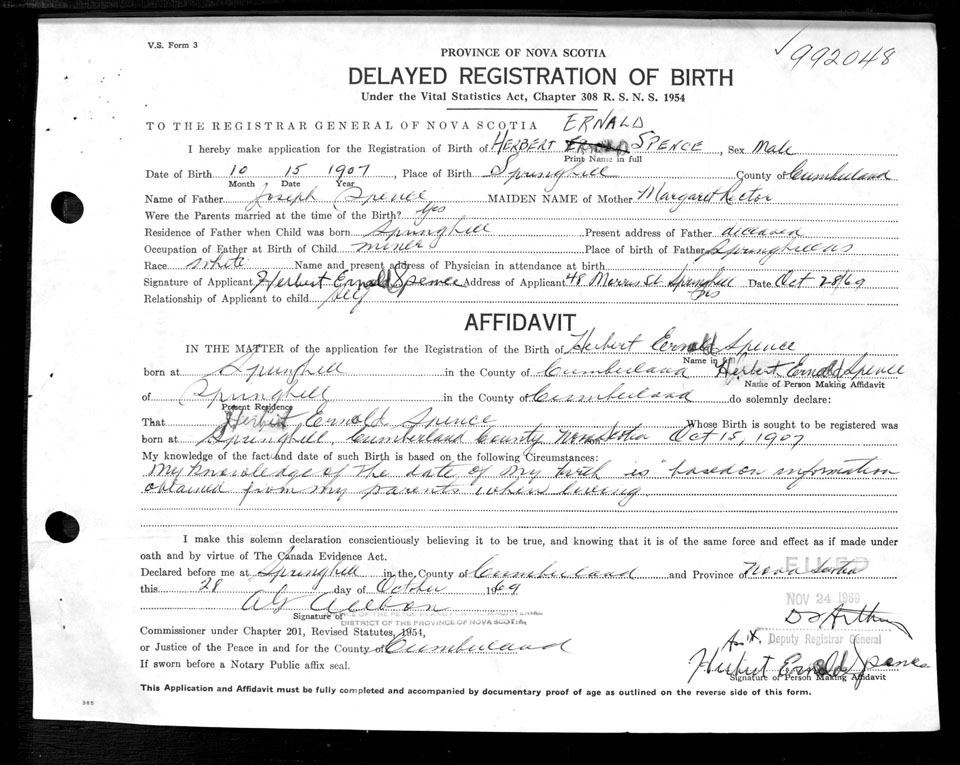 V.S. Form 3
992048
PROVINCE OF NOVA SCOTIA
DELAYED REGISTRATION OF BIRTH
Under the Vital Statistics Act, Chapter 308 R. S. N. S. 1954
TO THE REGISTRAR GENERAL OF NOVA SCOTIA ERNALD
I hereby make application for the Registration of Birth of HERBERT SPENCE, Sex Male
Print Name in full
Date of Birth 10 15 1907, Place of Birth Springhill County of Cumberland
Month Date Year
Name of Father Joseph Spence MAIDEN NAME of Mother Margaret Rector
Were the Parents married at the time of the Birth? yes
Residence of Father when Child was born Springhill Present address of Father deceased
Occupation of Father at Birth of Child miner Place of birth of Father Springhill NS
Race white Name and present address of Physician in attendance at birth
Signature of Applicant Herbert Ernald Spence Address of Applicant 48 Morris St Springhill NS Date Oct 28/69
Relationship of Applicant to child self
AFFIDAVIT
IN THE MATTER of the application for the Registration of the Birth of Herbert Ernald Spence
Name in full
born at Springhill in the County of Cumberland Herbert Ernald Spence
Name of Person Making Affidavit
of Springhill in the County of Cumberland do solemnly declare:
Present Residence
That Herbert Ernold Spence Whose Birth is sought to be registered was
born at Springhill, Cumberland County Nova Scotia Oct 15, 1907
My knowledge of the fact and date of such Birth is based on the following Circumstances:
My knowledge of the date of my birth is based on information
obtained from my parents when living
I make this solemn declaration conscientiously believing it to be true, and knowing that it is of the same force and effect as if made under
oath and by virtue of The Canada Evidence Act.
Declared before me at Springhill in the County of Cumberland and Province of Nova Scotia
this 28 day of October 1969
FILED
NOV 24 1969
Signature of
DISTRICT OF THE PROVINCE OF NOVA SCOTIA
Commissioner under Chapter 201, Revised Statutes, 1954,
Deputy Registrar General
or Justice of the Peace in and for the County of Cumberland
Herbert Ernald Spence
If sworn before a Notary Public affix seal.
Signature of Person Making Affidavit
This Application and Affidavit must be fully completed and accompanied by documentary proof of age as outlined on the reverse side of this form.
385